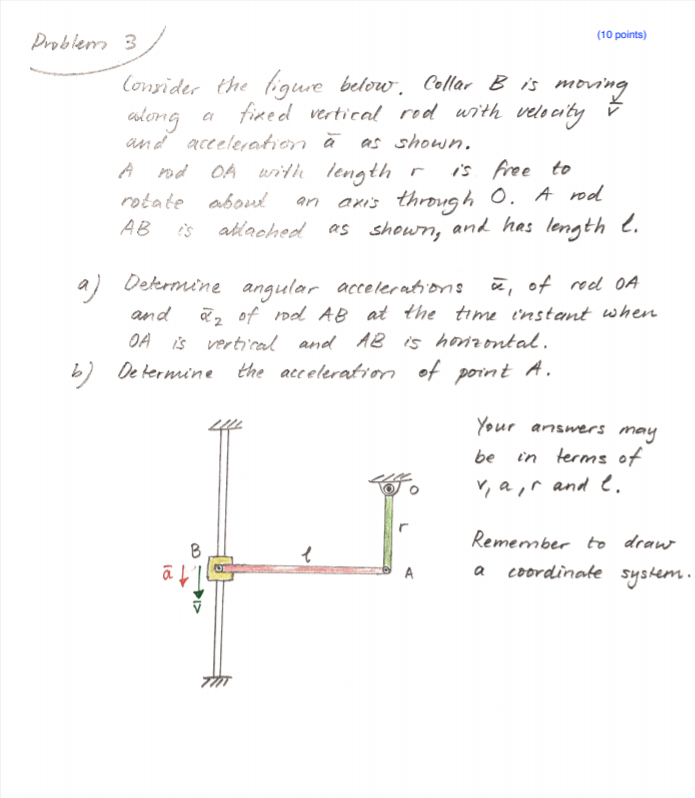 Problem 3
(10 points)
Consider the figure below. Collar B is moving
along a fixed vertical rod with velocity v̄
and acceleration ā as shown.
A rod OA with length r is free to
rotate about an axis through O. A rod
AB is attached as shown, and has length l.
a) Determine angular accelerations ᾱ₁ of rod OA
and ᾱ₂ of rod AB at the time instant when
OA is vertical and AB is horizontal.
b) Determine the acceleration of point A.
Your answers may
be in terms of
v, a, r and l.
Remember to draw
a coordinate system.
O
r
B
l
A
ā
v̄